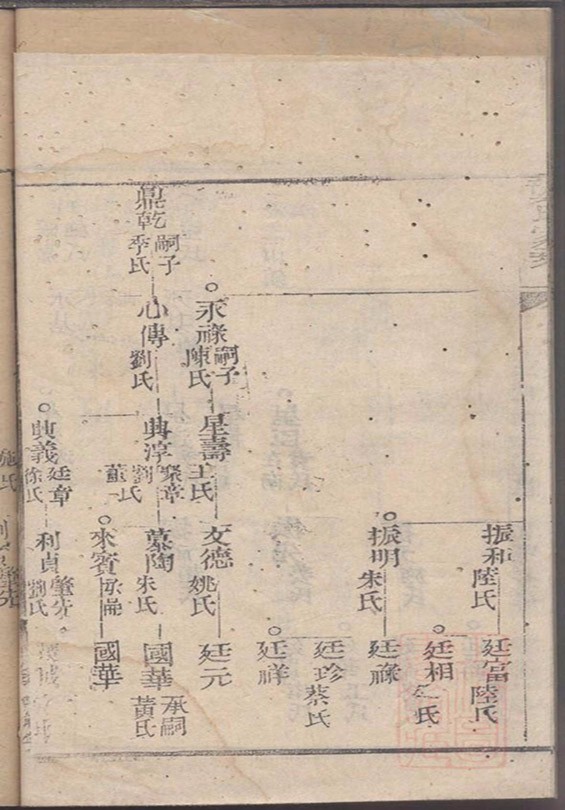 振和
陸氏
廷富
陸氏
廷相
氏
振明
朱氏
廷祿
廷珍
蔡氏
廷祥
永祿
嗣子
陳氏
星壽
王氏
文德
姚氏
廷元
鼎乾
嗣子
季氏
心傳
劉氏
典淳
聚章
劉氏
董氏
慕陶
朱氏
國華
承嗣
黃氏
來賓
國華
典義
廷章
徐氏
利貞
肇先
劉氏